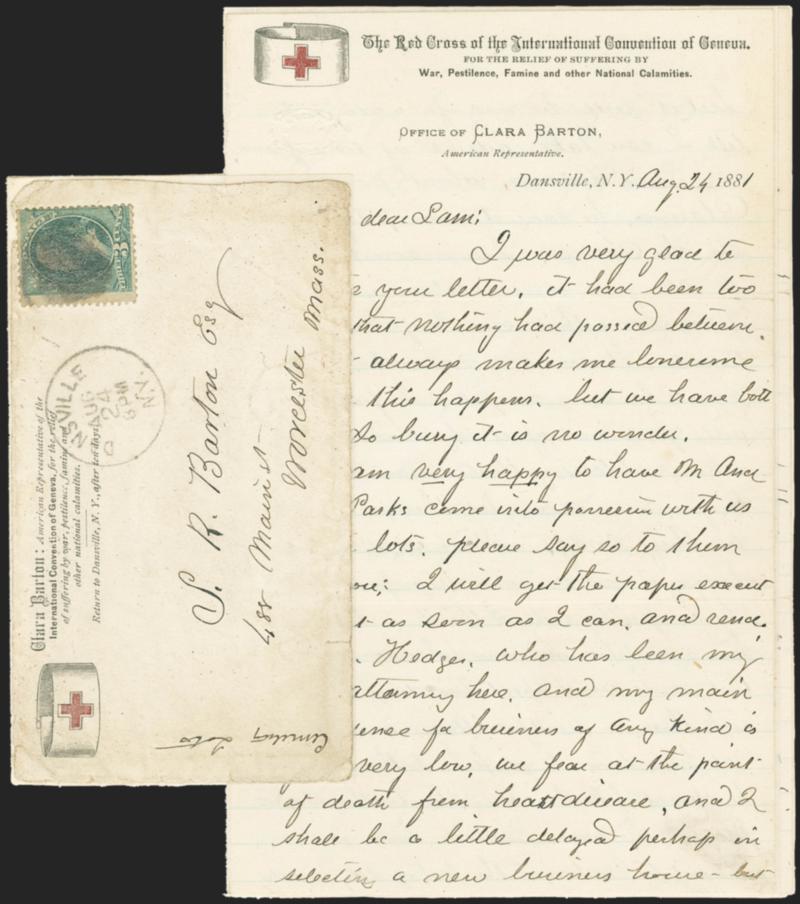 The Red Cross of the International Convention of Geneva.
FOR THE RELIEF OF SUFFERING BY
War, Pestilence, Famine and other National Calamities.
OFFICE OF CLARA BARTON,
American Representative.
Dansville, N.Y. Aug. 24 1881
dear Sam:
I was very glad to
your letter. it had been too
that nothing had passed between.
always makes me lonesome
this happens. but we have both
so busy it is no wonder.
am very happy to have Mr And
Parks come into possession with us
lots. please say so to them
I will get the paper execut
as soon as I can. and send
Hedges. who has been my
attorney here. and my main
for business of any kind is
very low, we fear at the point
of death from heart disease, and I
shall be a little delayed perhaps in
selecting a new business home - but
NSVILLE
AUG
24
6PM
N.Y.
S. R. Barton Esq
Main st
Worcester
Mass.
Clara Barton: American Representative of the
International Convention of Geneva, for the relief
of suffering by war, pestilence, famine and
other national calamities.
Return to Dansville, N. Y., after ten days.
Lots